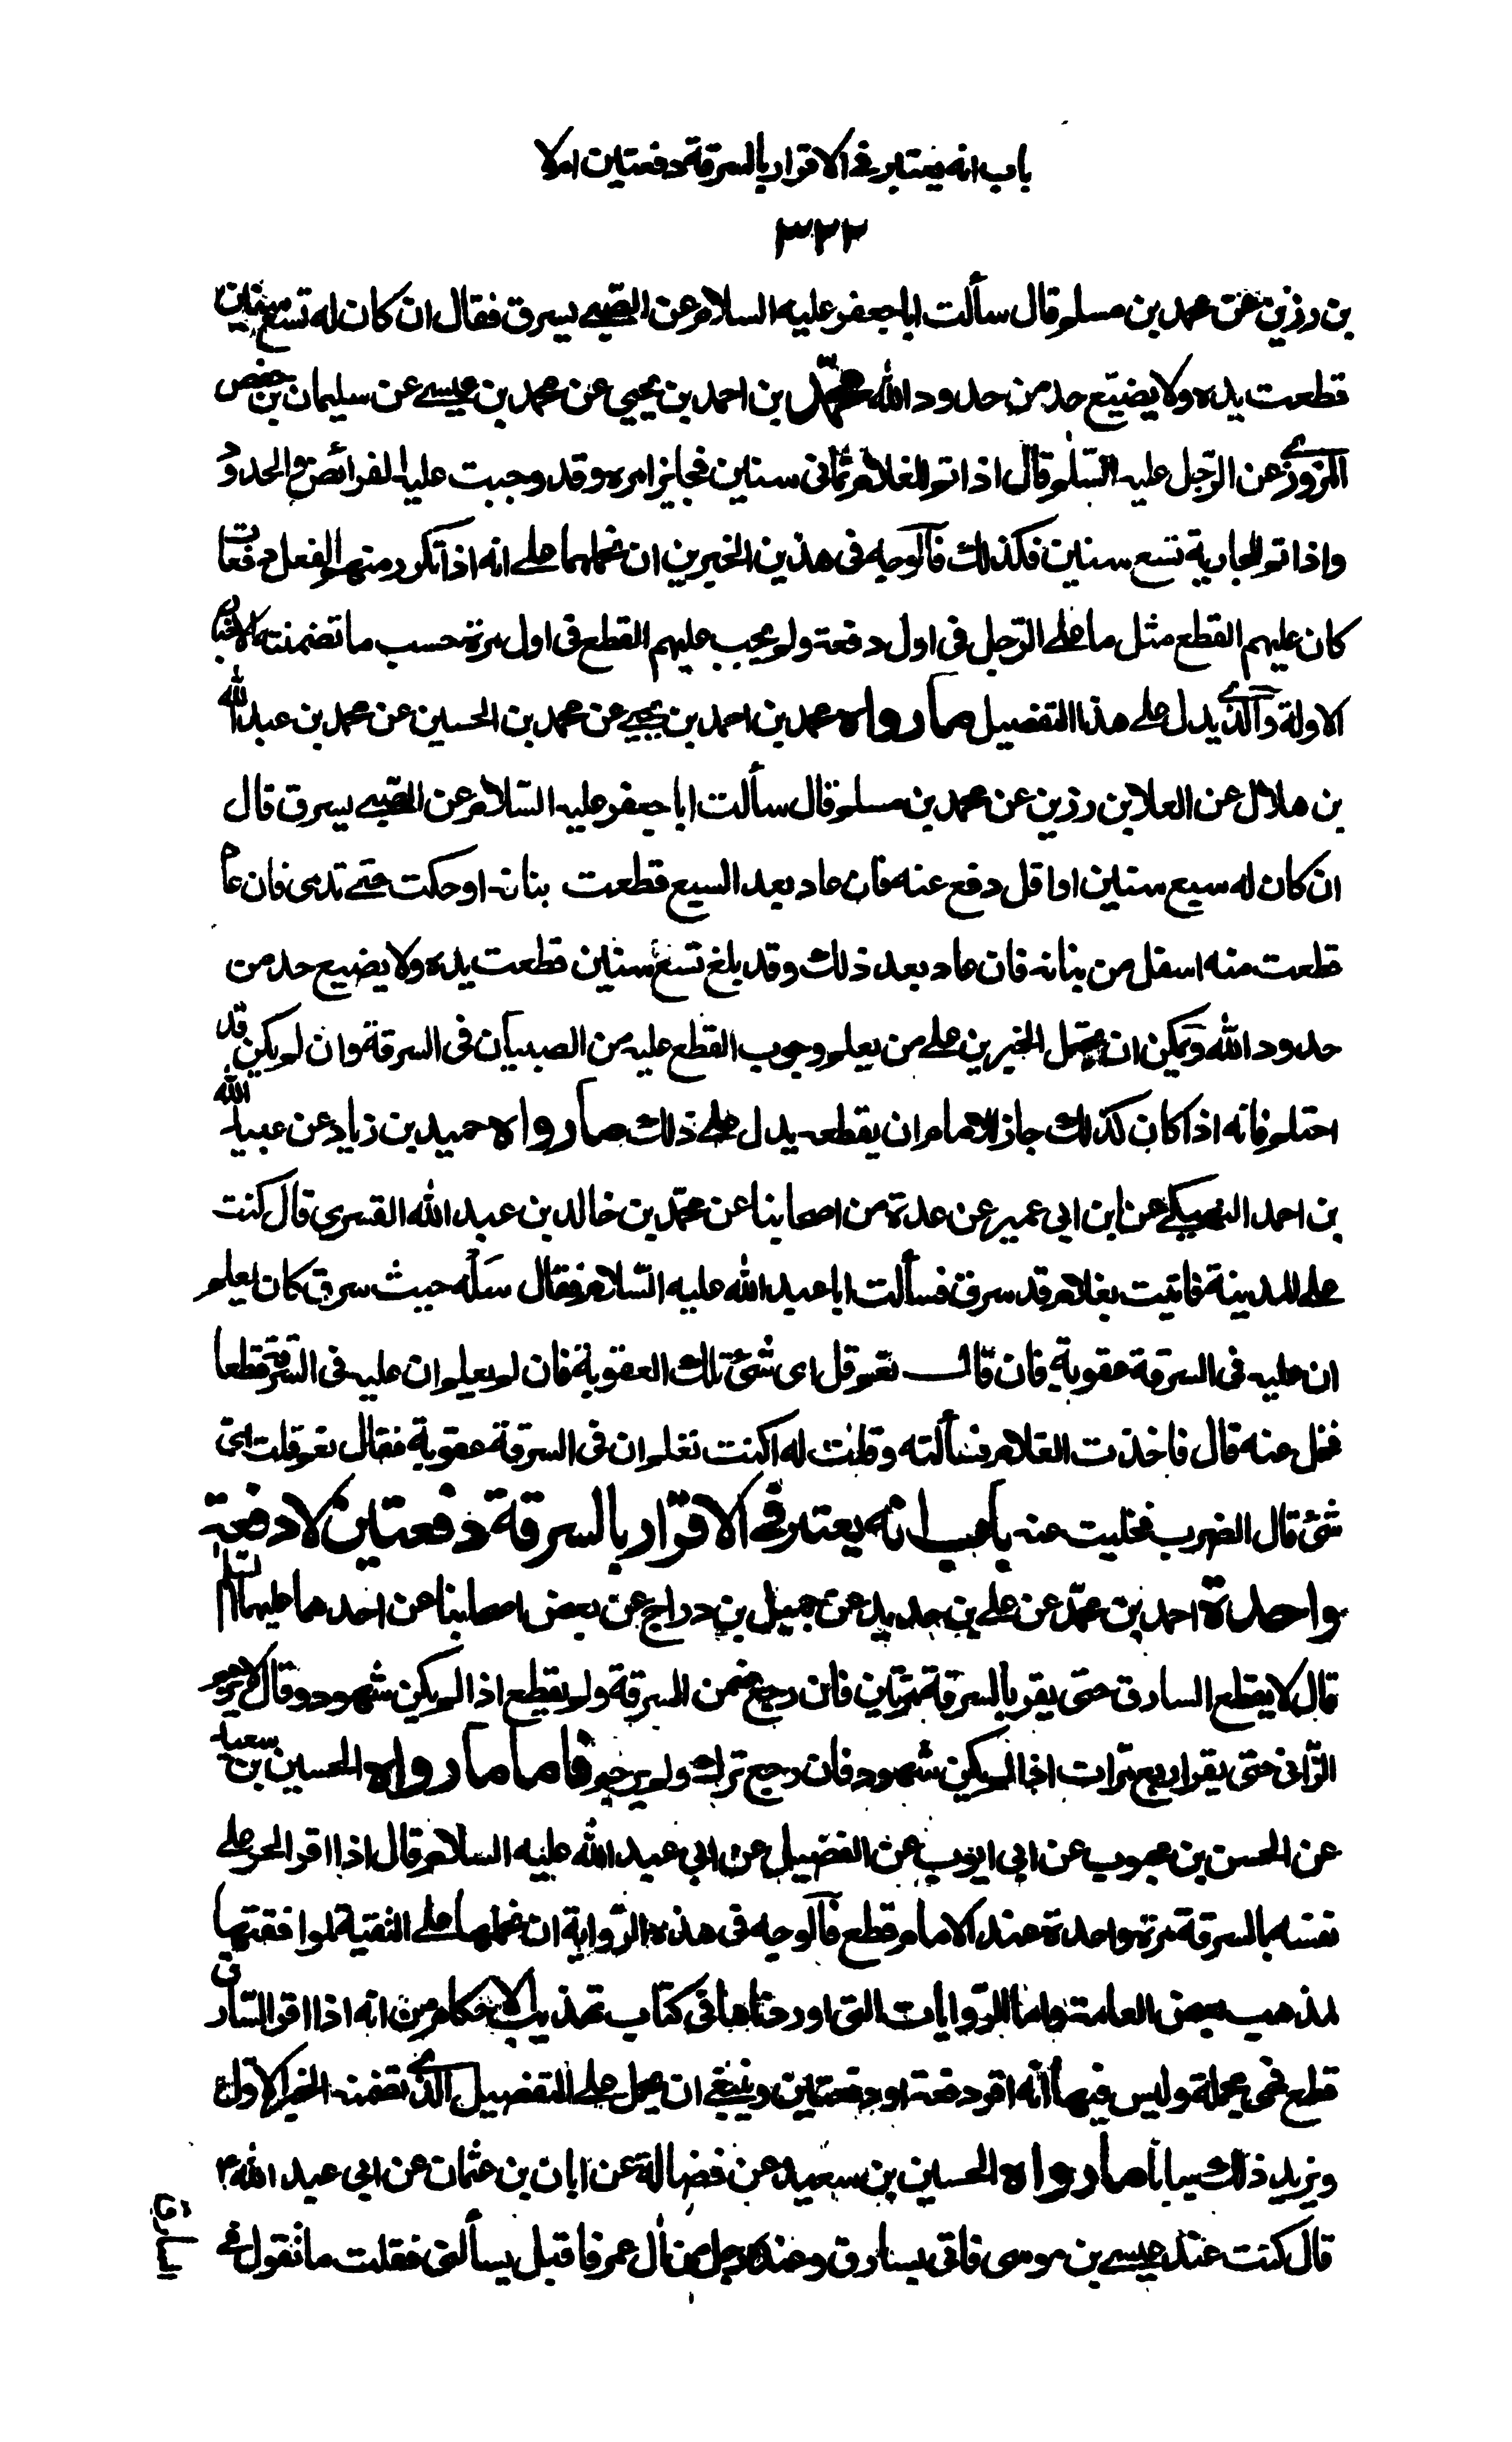 باب انه يعتبر فى الاقرار بالسرقة دفعتين ام لا
٣٢٢
بن رزين عن محمد بن مسلم قال سألت ابا جعفر عليه السلام عن الصبى يسرق فقال ان كان له تسع سنين
قطعت يده ولا يضيّع حد من حدود الله محمّد بن احمد بن يحيى عن محمد بن عيسى عن سليمان بن حفص
المروزى عن الرّجل عليه السّلم قال اذا تم للغلام ثمانى سنين فجايز امره وقد وجبت عليه الفرائض والحدود
واذا تم للجارية تسع سنين فكذلك فالوجه فى هذين الخبرين ان نحملهما على انه اذا تكرر منهم الفعل دفعات
كان عليهم القطع مثل ما على الرّجل فى اول دفعة ولم يجب عليهم القطع فى اول مرة حسب ما تضمنته الاخبار
الاولة والّذى يدل على هذا التفصيل ما رواه محمد بن احمد بن يحيى عن محمد بن الحسين عن محمد بن عبد الله
بن هلال عن العلا بن رزين عن محمد بن مسلم قال سألت ابا جعفر عليه السّلام عن الصّبى يسرق قال
ان كان له سبع سنين او اقل دفع عنه فان عاد بعد السبع قطعت بنانه او حكت حتى تدمى فان عاد
قطعت منه اسفل من بنانه فان عاد بعد ذلك وقد بلغ تسع سنين قطعت يده ولا يضيع حد من
حدود الله ويمكن ان يحمل الخبرين على من يعلم وجوب القطع عليه من الصبيان فى السرقة وان لم يكن قد
احتلم فانه اذا كان كذلك جاز للامام ان يقطعه يدل على ذلك ما رواه حميد بن زياد عن عبيد الله
بن احمد النهيكى عن ابن ابى عمير عن عدة من اصحابنا عن محمّد بن خالد بن عبد الله القسرى قال كنت
على المدينة فاتيت بغلام قد سرق فسألت ابا عبد الله عليه السّلام فقال سله حيث سرق كان يعلم
ان عليه فى السرقة عقوبة فان قال نعم قل اى شئ تلك العقوبة فان لم يعلم ان عليه فى السرقة قطعا
فخل عنه قال فاخذت الغلام فسألته وقلت له اكنت تعلم ان فى السرقة عقوبة فقال نعم قلت اى
شئ قال الضرب فخليت عنه باب انه يعتبر فى الاقرار بالسرقة دفعتين لا دفعة
واحدة احمد بن محمّد عن على بن حديد عن جميل بن دراج عن بعض اصحابنا عن احدهما عليهما السلم
قال لا يقطع السارق حتى يقر بالسرقة مرّتين فان رجع ضمن السرقة ولم يقطع اذا لم يكن شهود وقال لا يرجم
الزّانى حتى يقر اربع مرّات اذا لم يكن شهود فان رجع ترك ولم يرجم فاما ما رواه الحسين بن سعيد
عن الحسن بن محبوب عن ابى ايوب عن الفضيل عن ابى عبد الله عليه السلام قال اذا اقر الحر على
نفسه بالسرقة مرة واحدة عند الامام قطع فالوجه فى هذه الرّواية ان نحملها على التقية لموافقتها
لمذهب بعض العامة واما الرّوايات التى اوردناها فى كتاب تهذيب الاحكام من انه اذا اقر السّارق
قطع فهى مجملة وليس فيها انّه اقر دفعة او دفعتين وينبغى ان يحمل على التفصيل الّذى تضمنه الخبر الاول
ويزيد ذلك بيانا ما رواه الحسين بن سعيد عن فضالة عن ابان بن عثمان عن ابى عبد الله ٤
قال كنت عند عيسى بن موسى فاتى بسارق وعنده رجل من ال عمر فاقبل يسألنى فقلت ما تقول فى